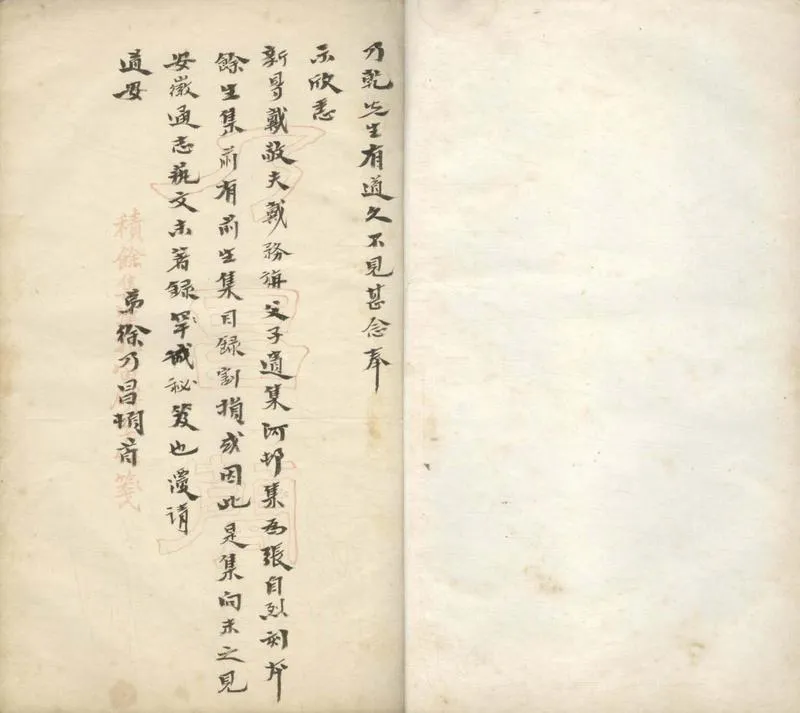 乃乾先生有道久不見甚念奉
示欣悉
新得戴敬夫戴務旃父子遺集河邨集為張自烈刻本
餘生集前有前生集目錄割損或因此是集向未之見
安徽通志藝文未著錄罕誠秘笈也復請
道安
弟徐乃昌頓首
積餘
箋